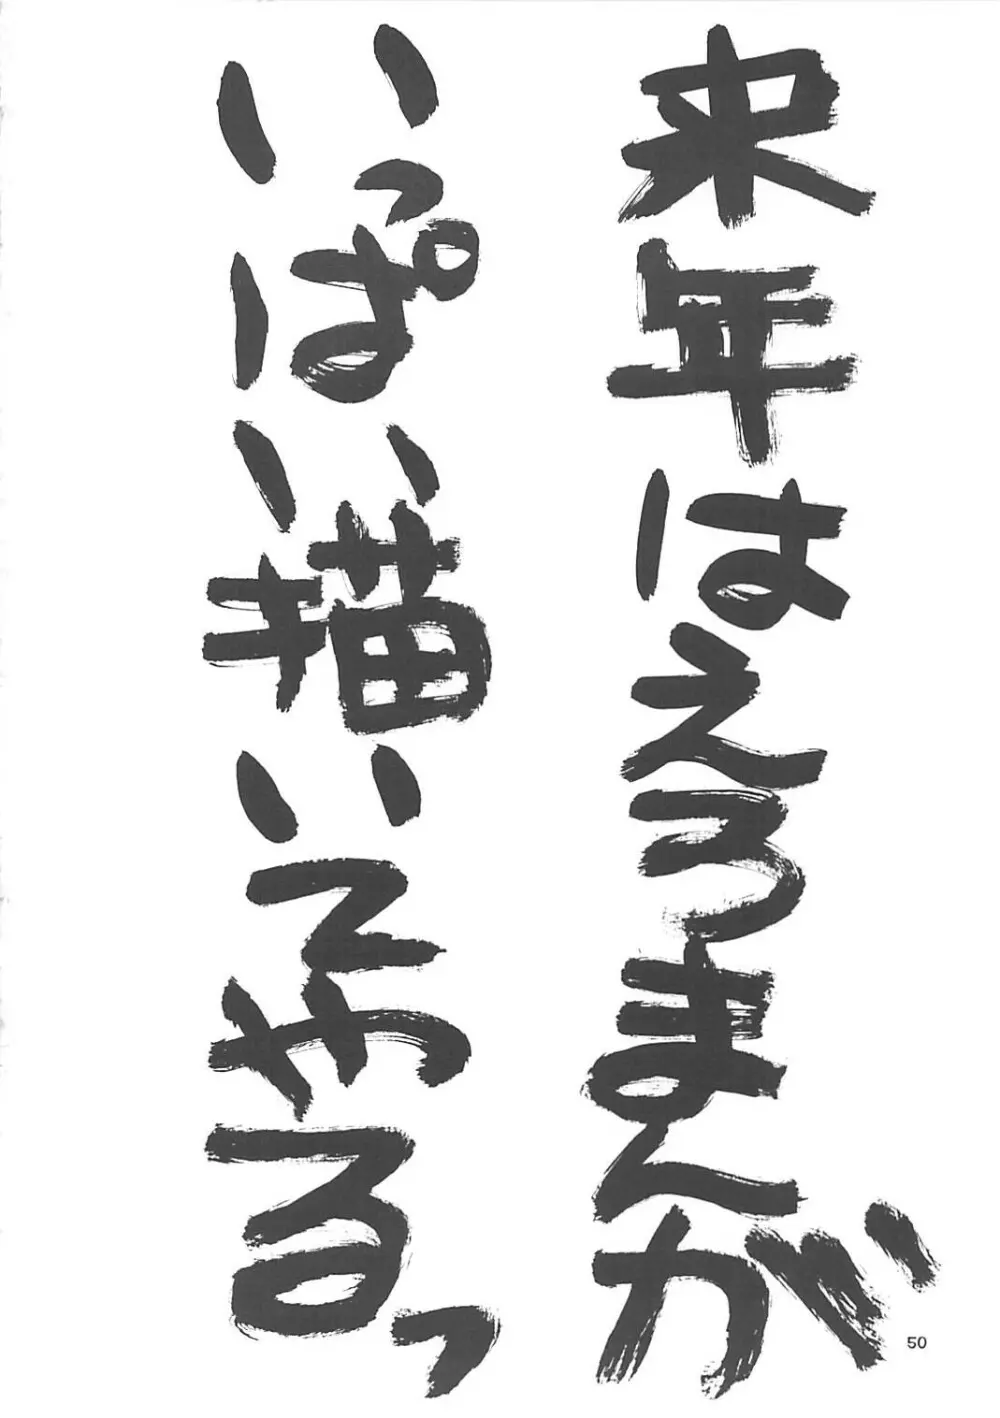 来年はえろまんが
いっぱい描いてやるっ
50